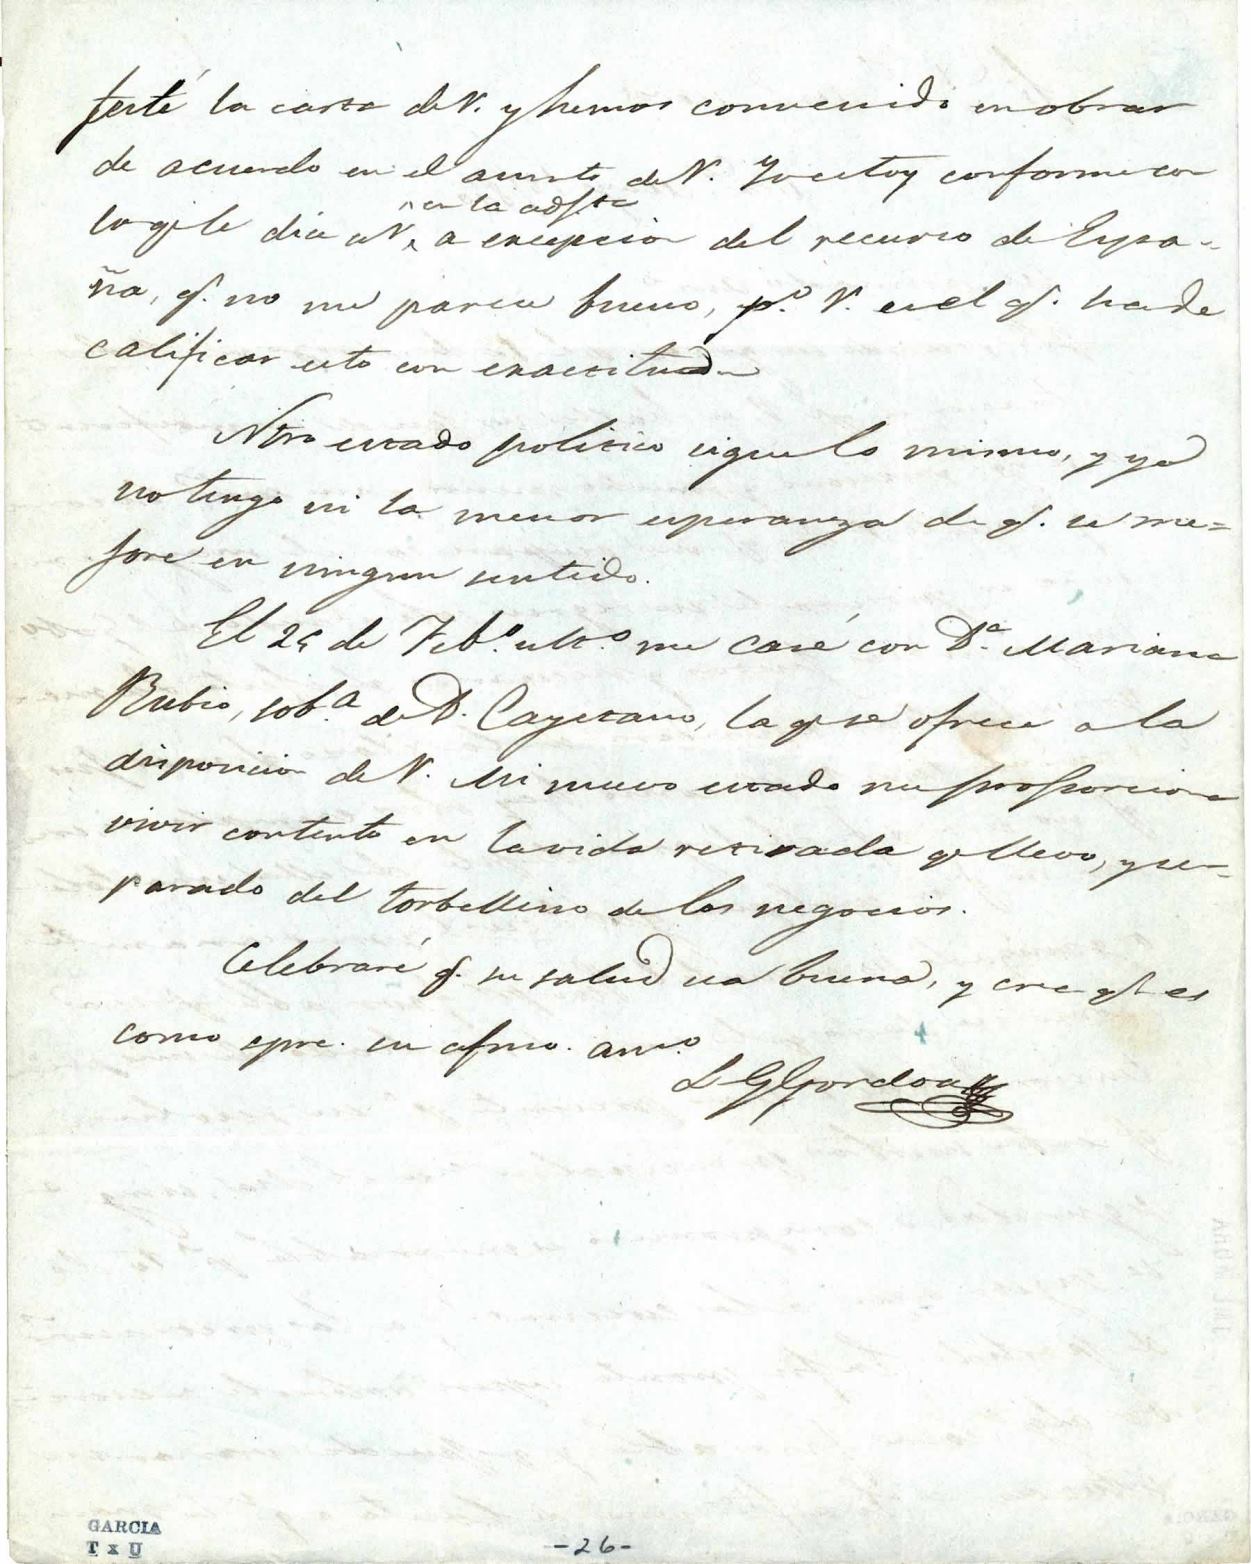 festé la carta de V. y hemos convenido en obrar
de acuerdo en el asunto de V. Yo estoy conforme con
en la adjta
lo qe le dia a V, a excepcion del recurso de Espa-
ña, q. no me parece bueno, po. V. es el q. ha de
calificar esto con exactitud.
Ntro estado politico sigue lo mismo, y ya
no tengo ni la menor esperanza de q. se me=
jore en ningun sentido.
El 25 de Febo. ulto. me casé con Da. Mariana
Rubio, soba. de D. Cayetano, la q se ofrece a la
disposicion de V. Mi nuevo estado me proporciona
vivir contento en la vida retirada q llevo, y se-
parado del torbellino de los negocios.
Celebraré q. su salud sea buena, y cre q es
como spre. su afmo. amo.
L G Gordoa
GARCIA
T x U
-26-